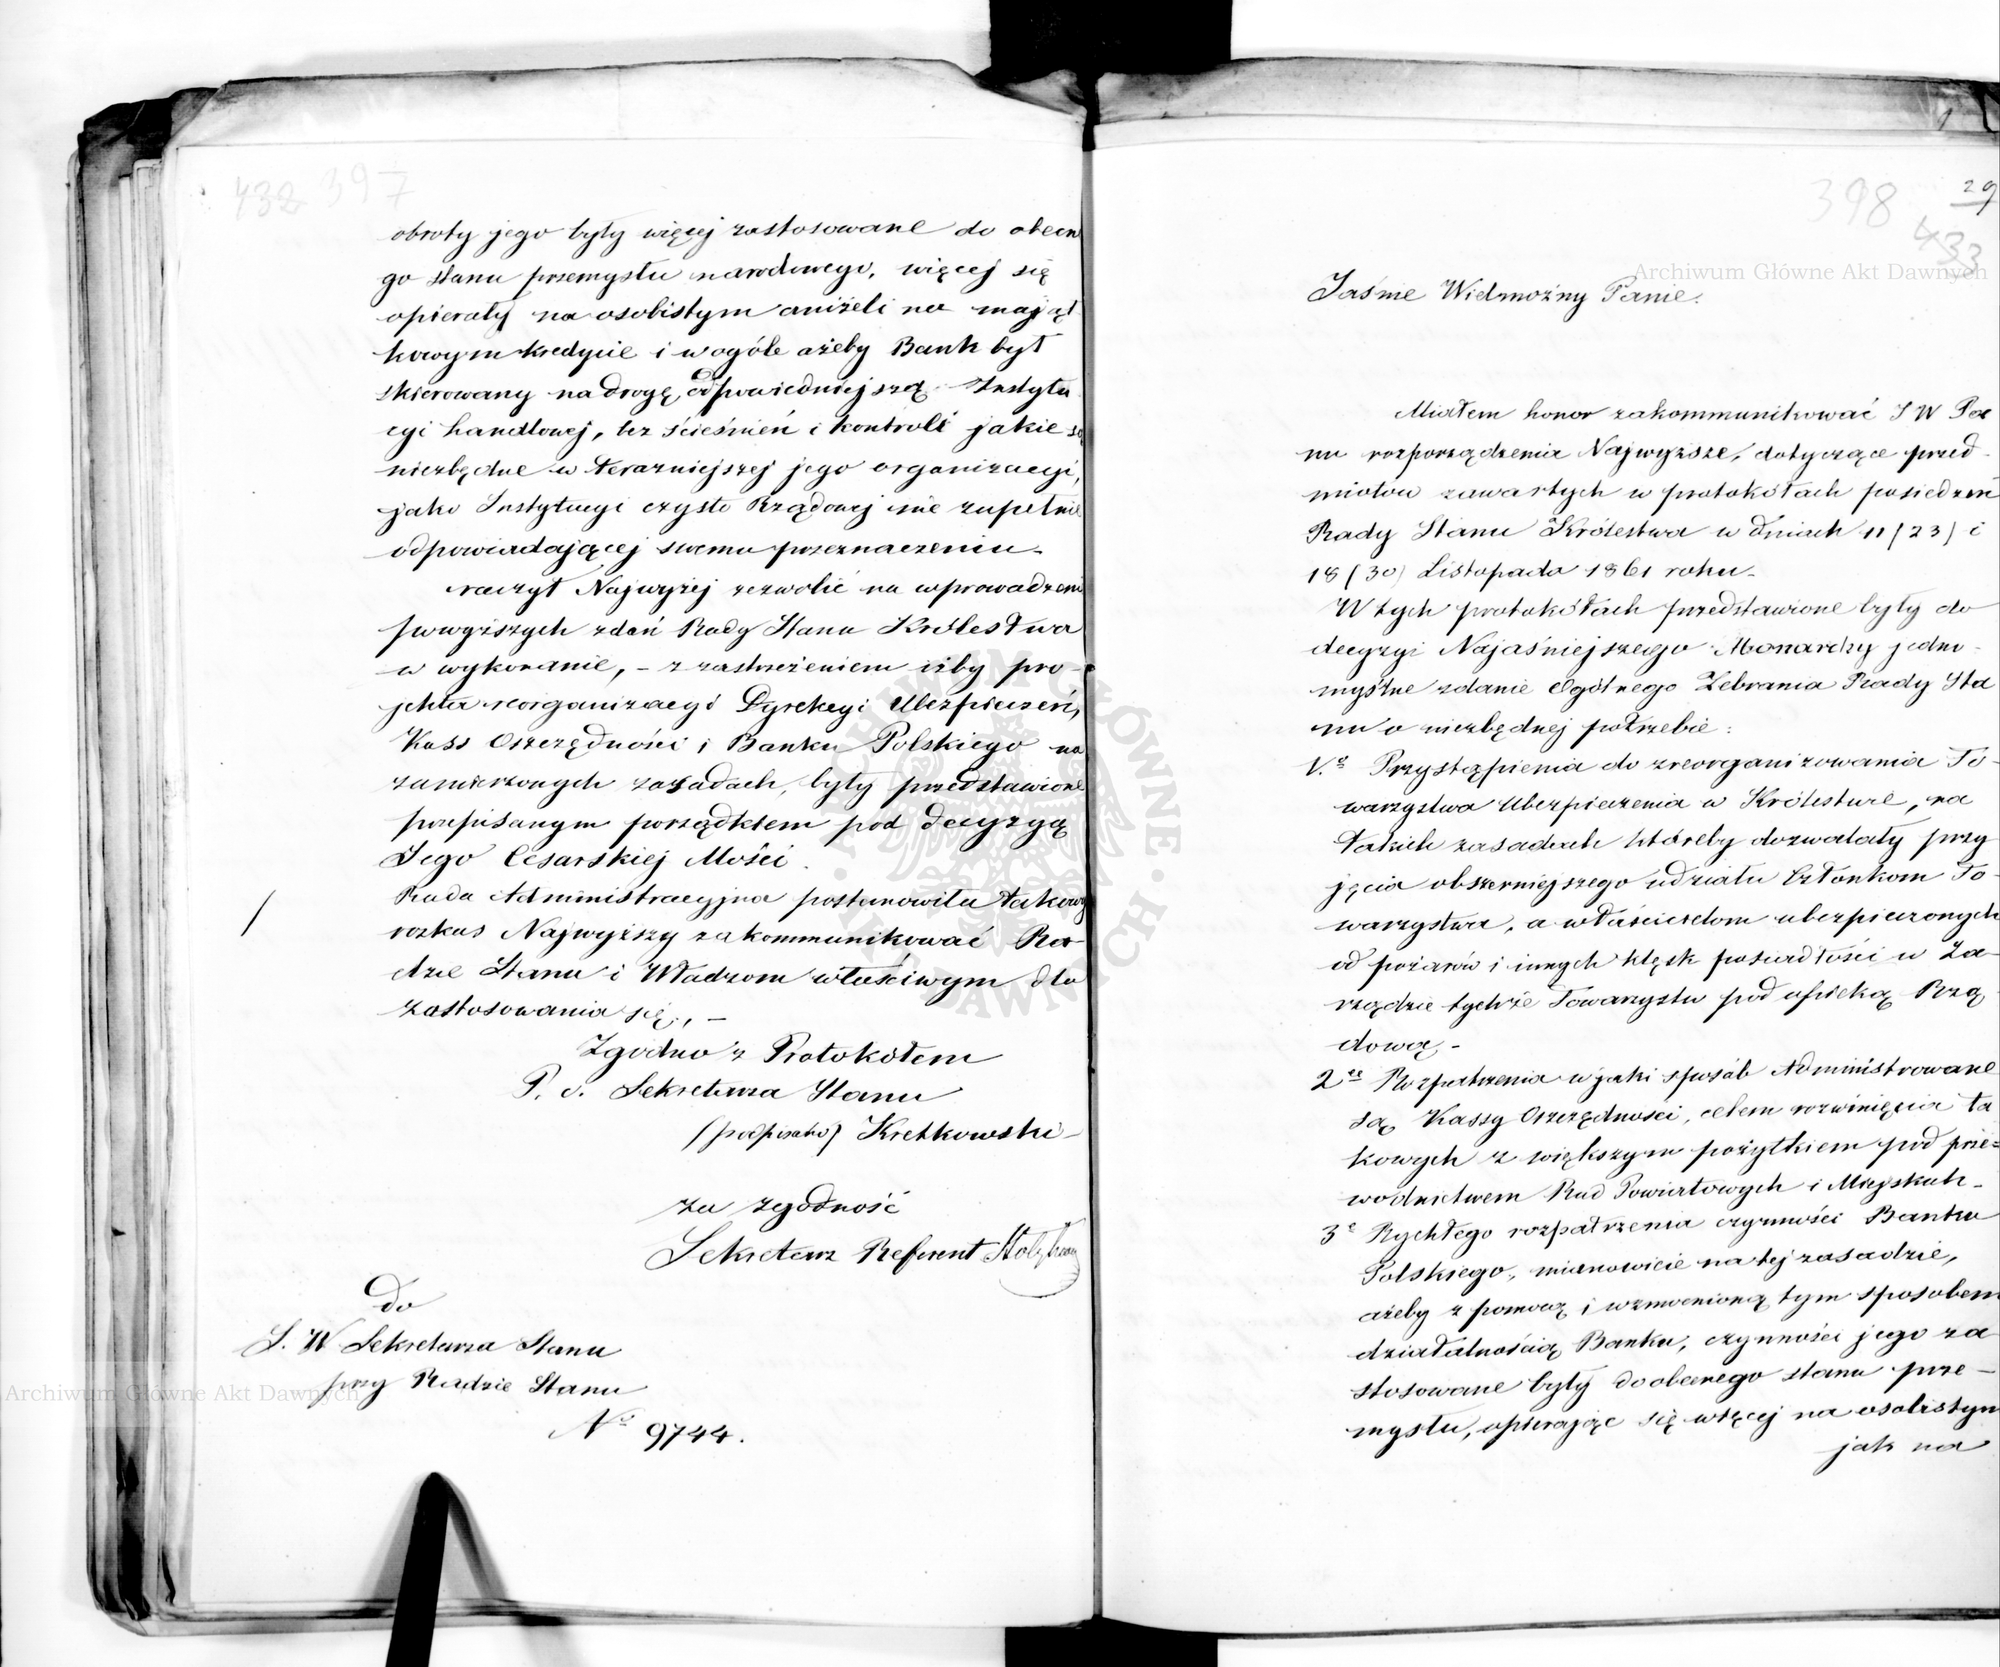 432 397
obroty jego były więcej zastosowane do obecne
go stanu przemysłu narodowego, więcej się
opierały na osobistym aniżeli na mająt
kowym kredycie i w ogóle ażeby Bank był
skierowany na drogę odpowiedniejszą Instytu
cyi handlowej, bez ścieśnień i kontroli jakie są
niezbędne w teraźniejszej jego organizacyi,
jako Instytucyi czysto Rządowej nie zupełnie
odpowiadającej swemu przeznaczeniu -
raczył Najwyżej zezwolić na wprowadzenie
powyższych zdań Rady Stanu Królestwa
w wykonanie, - z zastrzeżeniem iżby pro-
jekta reorganizacyi Dyrekcyi Ubezpieczeń,
Kass Oszczędności i Banku Polskiego na
zamierzonych zasadach, były przedstawione
przepisanym porządkiem pod decyzyą
Jego Cesarskiej Mości.
Rada Administracyjna postanowiła takowy
rozkaz Najwyższy zakommunikować Ra-
dzie Stanu i Władzom właściwym dla
zastosowania się, -
Zgodno z Protokółem
P. o. Sekretarza Stanu
(podpisano) Kretkowski -
za zgodność
Sekretarz Referent
Do
J. W Sekretarza Stanu
przy Radzie Stanu
No 9744.
398
29
433
Jaśnie Wielmożny Panie.
Miałem honor zakommunikować J W Pa
nu rozporządzenia Najwyższe, dotyczące przed-
miotów zawartych w protokółach posiedzeń
Rady Stanu Królestwa w dniach 11 (23) i
18 (30) Listopada 1861 roku -
W tych protokółach przedstawione były do
decyzyi Najaśniejszego Monarchy jedno-
myślne zdanie Ogólnego Zebrania Rady Sta
nu o niezbędnej potrzebie:
1.e Przystąpienia do zreorganizowania To-
warzystwa Ubezpieczenia w Królestwie, na
takich zasadach któreby dozwalały przy
jęcia obszerniejszego udziału Członkom To-
warzystwa, a właścicielom ubezpieczonych
od pożarów i innych klęsk posiadłości w Za-
rządzie tychże Towarzystw pod opieką Rzą
dową -
2re Rozpatrzenia w jaki sposób Administrowane
są Kassy Oszczędności, celem rozwinięcia ta
kowych z większym pożytkiem pod prze=
wodnictwem Rad Powiatowych i Miejskich -
3e Rychłego rozpatrzenia czynności Banku
Polskiego, mianowicie na tej zasadzie,
ażeby z pomocą i wzmocnioną tym sposobem
działalnością Banku, czynności jego za
stosowane były do obecnego stanu prze-
mysłu, opierając się więcej na osobistym
jak na
Archiwum Główne Akt Dawnych
Archiwum Główne Akt Dawnych